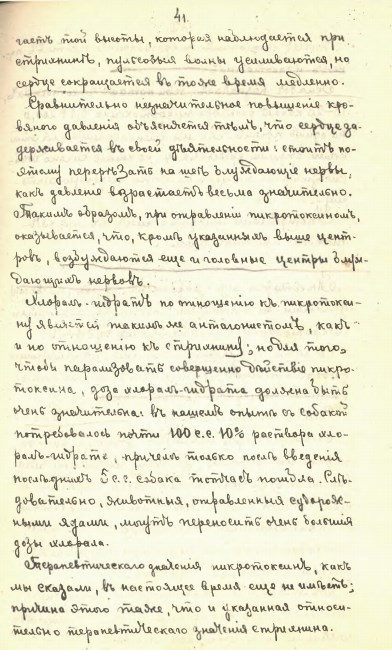 41.
гаетъ той высоты, которая наблюдается при
стрихнинѣ, пульсовыя волны усиливаются, но
сердце сокращается въ тоже время медленно.
Сравнительно незначительное повышеніе кро-
вяного давленія объясняется тѣмъ, что сердце за-
держивается въ своей дѣятельности: стоитъ по-
этому перерѣзать на шеѣ блуждающіе нервы,
какъ давленіе возрастаетъ весьма значительно.
Такимъ образомъ, при отравленіи пикротоксиномъ,
оказывается, что, кромѣ указанныхъ выше цент-
ровъ, возбуждаются еще и головные центры блуж-
дающихъ нервовъ.
Хлоралъ-гидратъ по отношенію къ пикротокси-
ну является такимъ же антагонистомъ, какъ
и по отношенію къ стрихнину; но для того,
чтобы парализовать совершенно дѣйствіе пикро-
токсина, доза хлоралъ-гидрата должна быть
очень значительна: въ нашемъ опытѣ съ собакой
потребовалось почти 100 c.c. 10% раствора хло-
ралъ-гидрата, причемъ только послѣ введенія
послѣднихъ 5 c.c. собака тотчасъ погибла. Слѣ-
довательно, животныя, отравленныя судорож-
ными ядами, могутъ переносить очень большія
дозы хлорала.
Терапевтическаго значенія пикротоксинъ, какъ
мы сказали, въ настоящее время еще не имѣетъ;
причина этого таже, что и указанная относи-
тельно терапевтическаго значенія стрихнина.